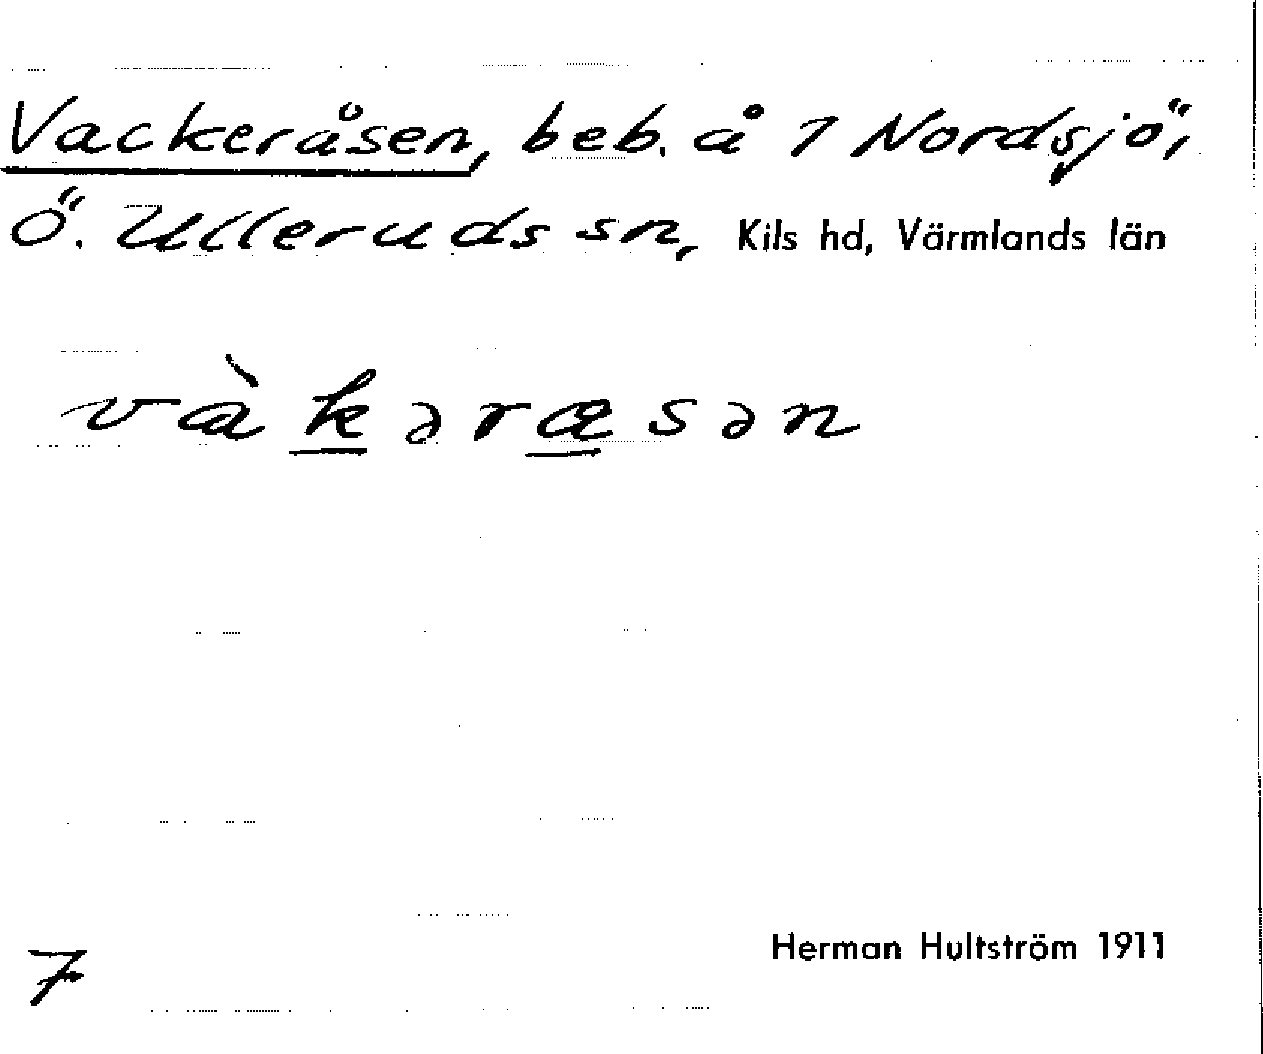 Vackeråsen, beb. å 7 Nordsjö,
Ö. Ulleruds sn, Kils hd, Värmlands län
vàkəræsən
Herman Hultström 1911
7